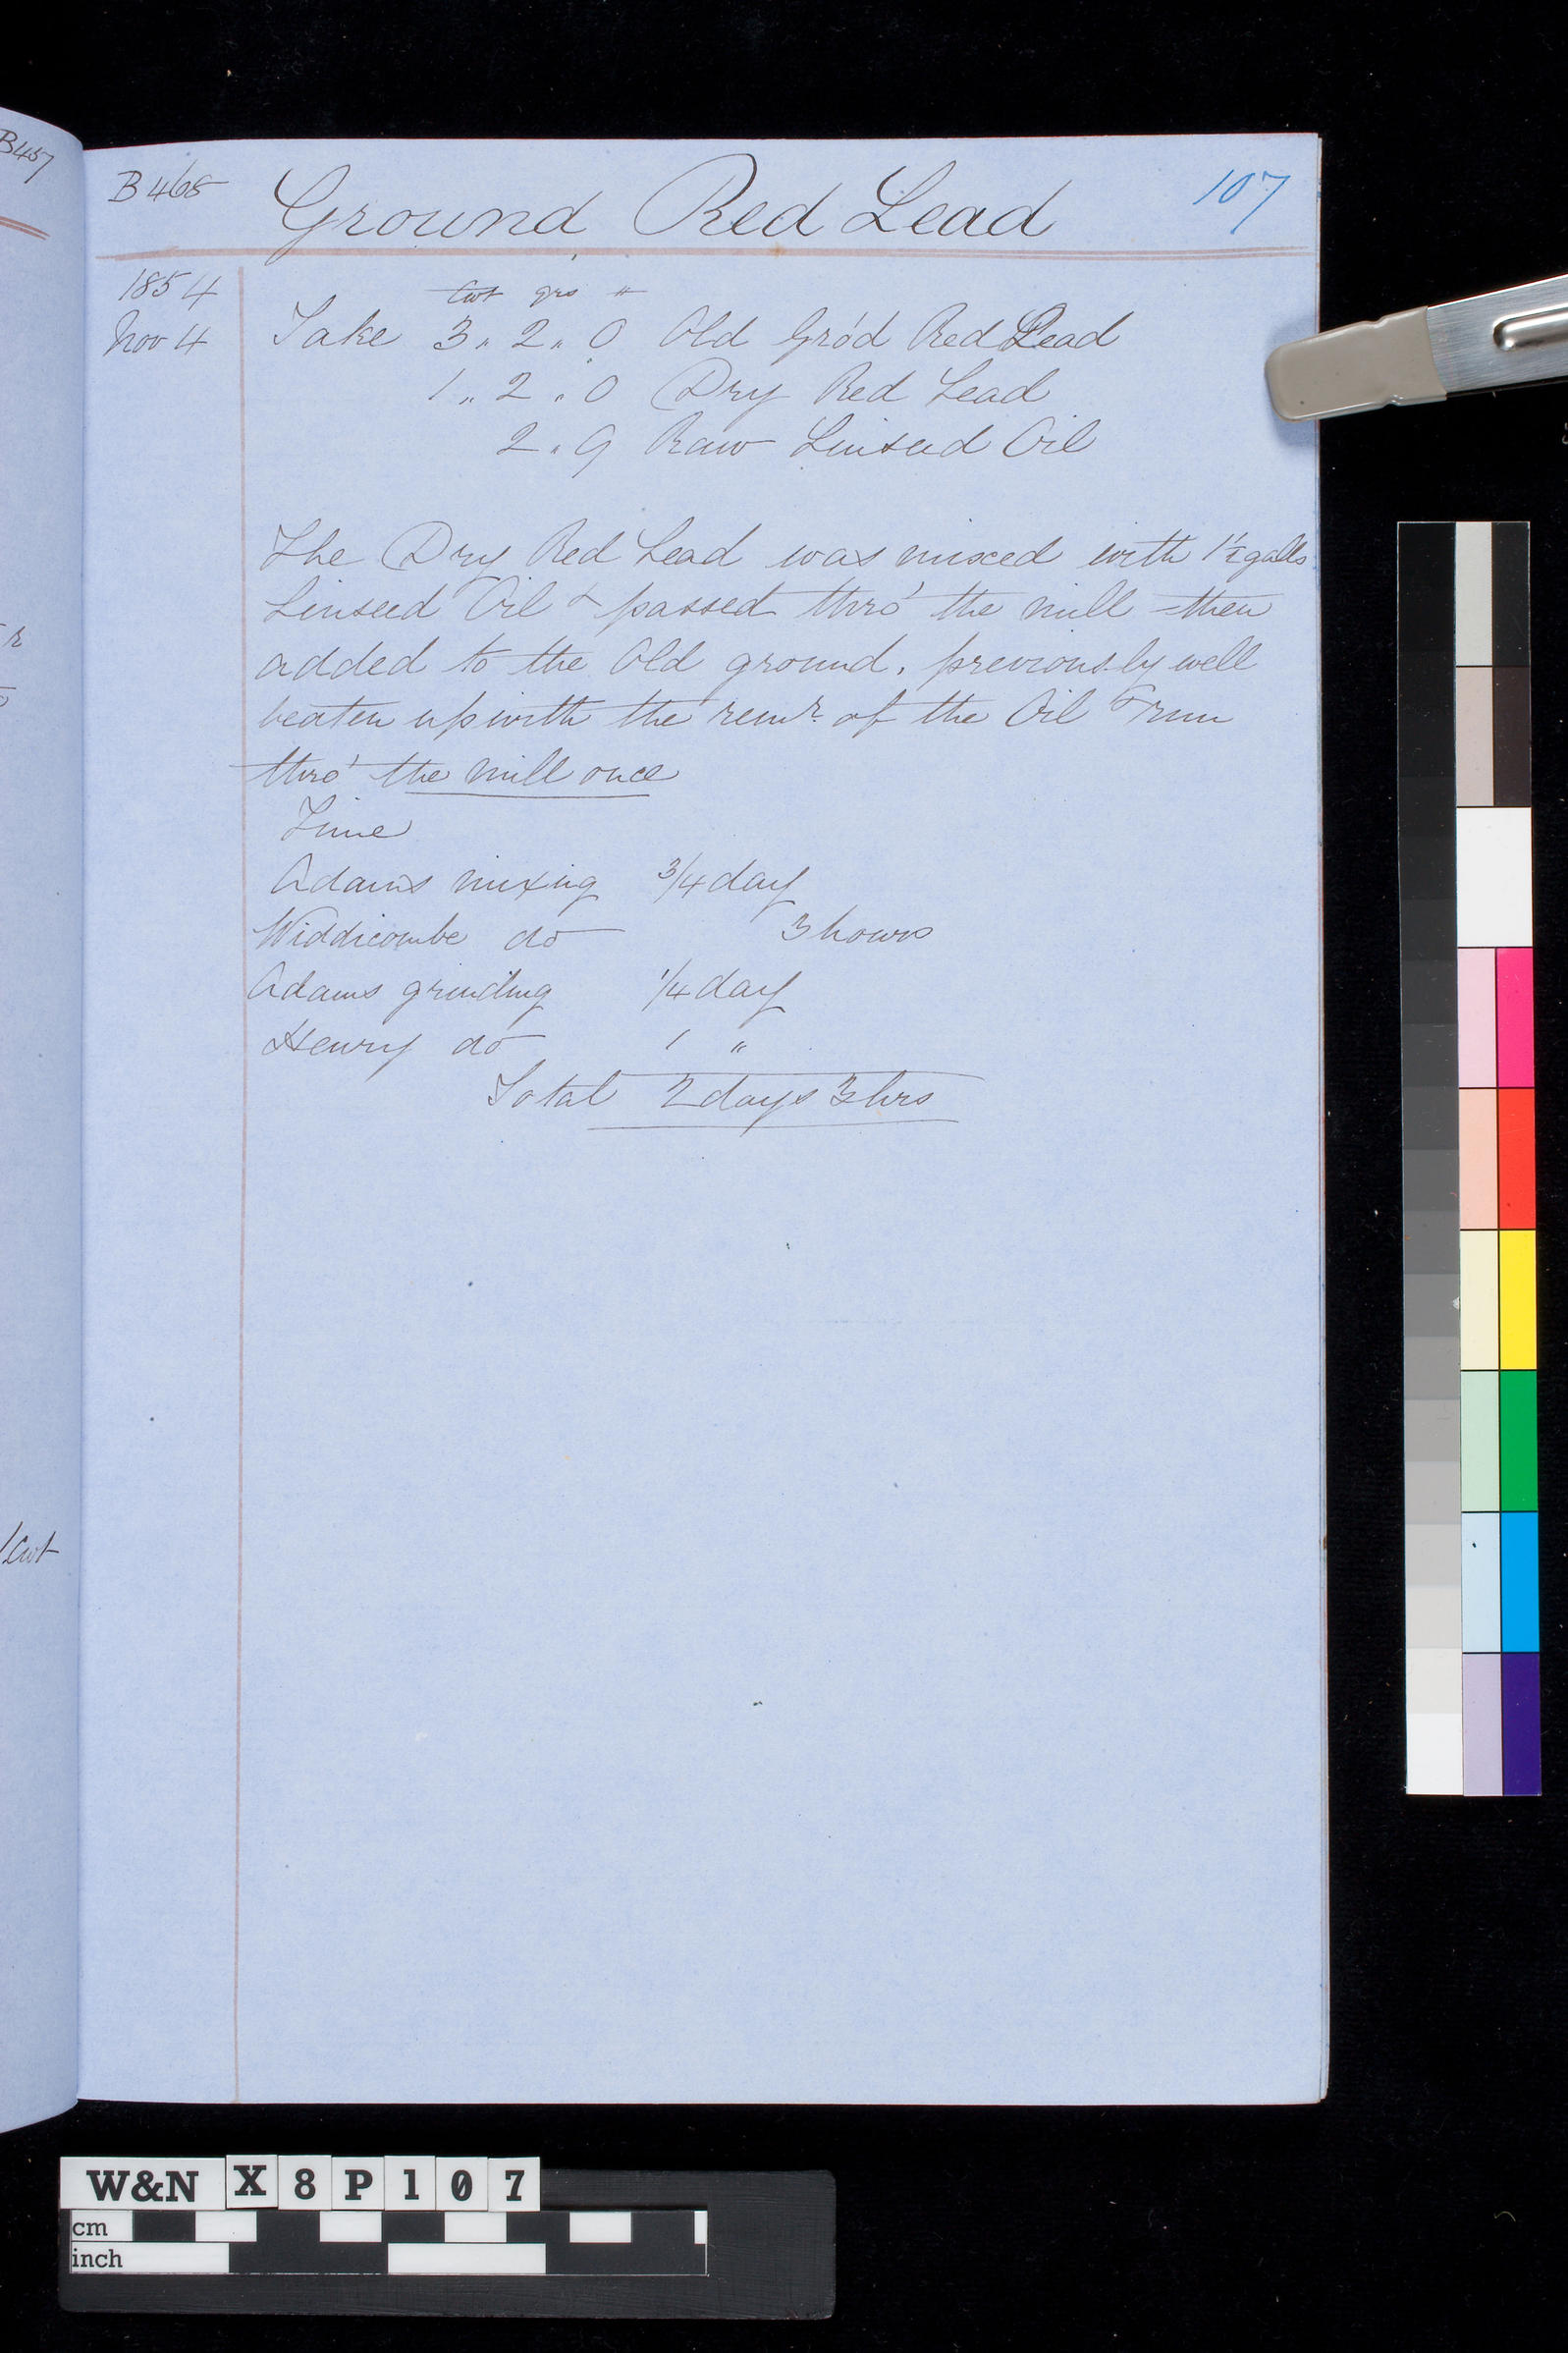 B457
B468 Ground Red Lead 107
1854
Cwt qrs "
Nov 4 Take 3 .. 2 .. 0 Old Gro'd Red Lead
1 .. 2 .. 0 Dry Red Lead
2 .. 9 Raw Linseed Oil
The Dry Red Lead was mixed with 1½ galls
Linseed Oil & passed thro' the mill - then
added to the Old ground, previously well
beaten up with the remr. of the Oil & run
thro' the mill once
Time
Adams mixing 3/4 day
Widdicombe do 3 hours
Adams grinding 1/4 day
Henry do 1 "
Total 2 days 3 hrs
/Cwt
W&N X8P107
cm
inch